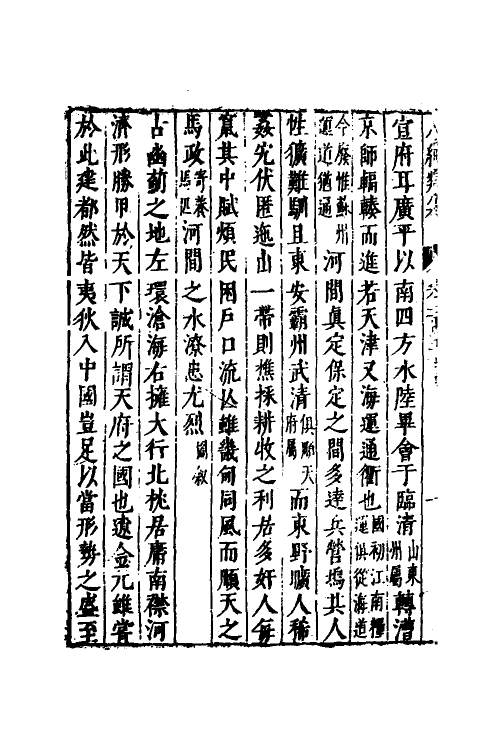 宣府耳廣平以南四方水陸畢會于臨清山東州屬轉漕
京師輻輳而進若天津又海運通衢也國初江南糧運俱從海道
今廢惟蘇州運道猶通河間真定保定之間多達兵營塢其人
性獷難馴且東安霸州武清俱順天府屬而東野曠人稀
姦宄伏匿迤山一帶則樵採耕收之利居多奸人每
竄其中賦煩民困戶口流亾雖畿甸同風而順天之
馬政寄養馬匹河間之水潦患尤烈圖敘
古幽薊之地左環滄海右擁太行北枕居庸南襟河
濟形勝甲於天下誠所謂天府之國也遼金元雖嘗
於此建都然皆夷狄入中國豈足以當形勢之盛至